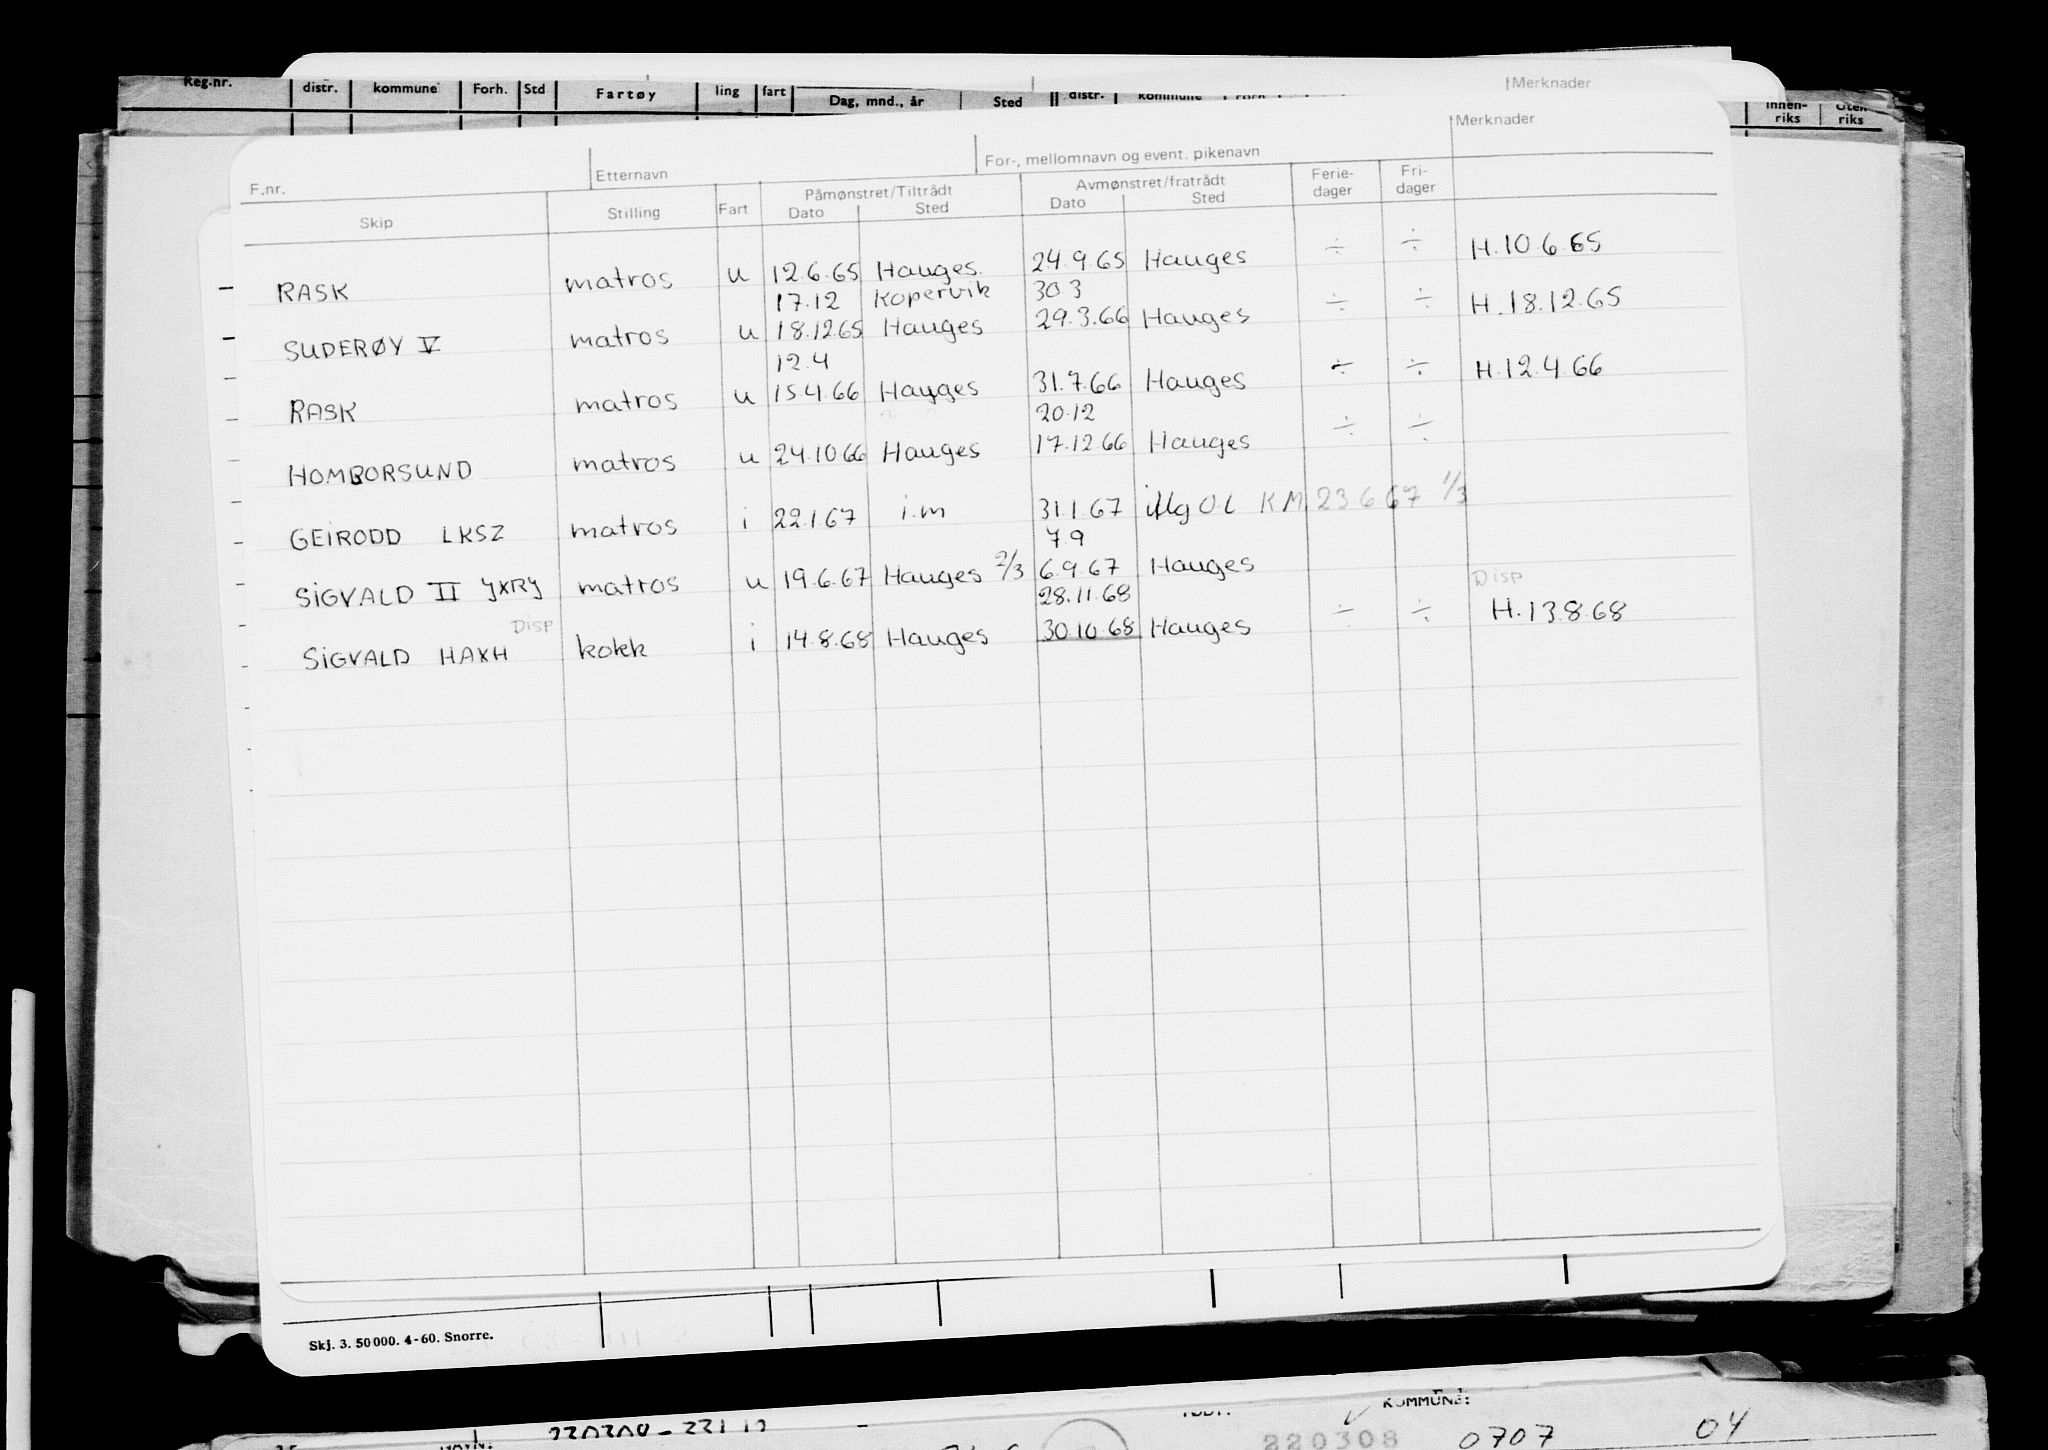 Merknader
Reg.nr. distr. kommune Forh. Std Fartøy ling fart Dag, mnd., år Sted distr. kommune Innen-riks Uten-riks
Merknader
F.nr. Etternavn For-, mellomnavn og event. pikenavn
Skip Stilling Fart Påmønstret/Tiltrådt Dato Sted Avmønstret/fratrådt Dato Sted Ferie-dager Fri-dager
RASK matros u 12.6.65 Hauges. 24.9.65 Hauges ÷ ÷ H.10.6.65
17.12 Kopervik 30.3
SUDERØY V matros u 18.12.65 Hauges 29.3.66 Hauges ÷ ÷ H.18.12.65
12.4
RASK matros u 15.4.66 Hauges 31.7.66 Hauges ÷ ÷ H.12.4.66
20.12
HOMBORSUND matros u 24.10.66 Hauges 17.12.66 Hauges ÷ ÷
GEIRODD LKSZ matros i 22.1.67 i.m 31.1.67 iflg O.L KM 23.6.67 1/3
7.9
SIGVALD II JXRJ matros u 19.6.67 Hauges 2/3 6.9.67 Hauges
28.11.68
Disp Disp
SIGVALD HAXH kokk i 14.8.68 Hauges 30.10.68 Hauges ÷ ÷ H.13.8.68
Skj. 3. 50000. 4-60. Snorre.
KOMMUNE:
220308 0707 04